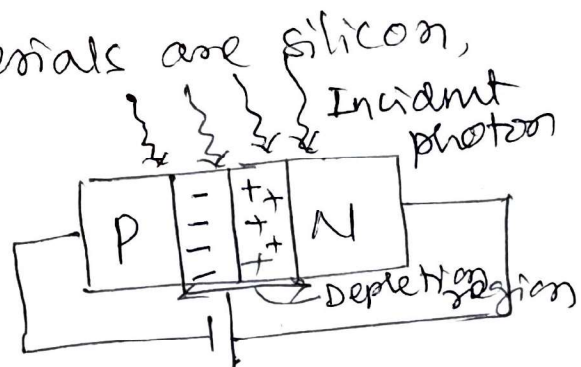 erials are silicon,
Incidnt
photon
P
- - - -
+ + + + +
N
Depletion region